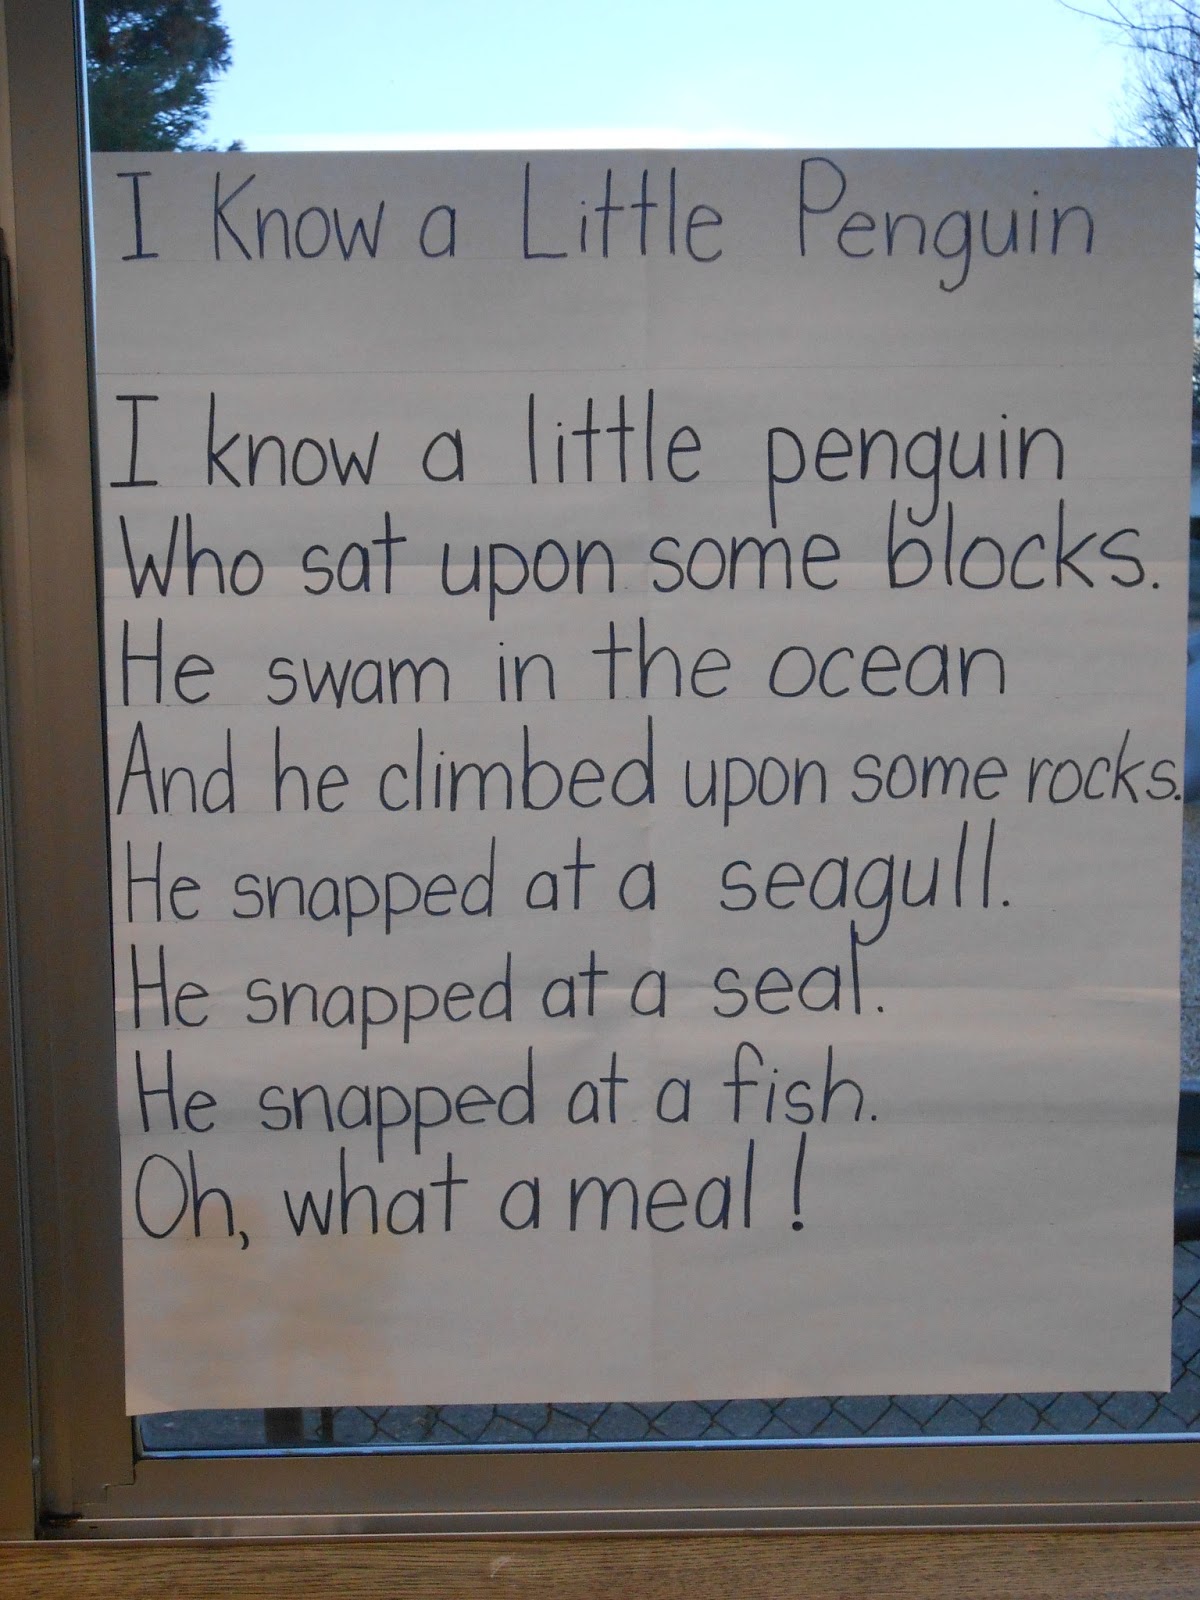 I Know a Little Penguin
I know a little penguin
Who sat upon some blocks.
He swam in the ocean
And he climbed upon some rocks.
He snapped at a seagull.
He snapped at a seal.
He snapped at a fish.
Oh, what a meal!